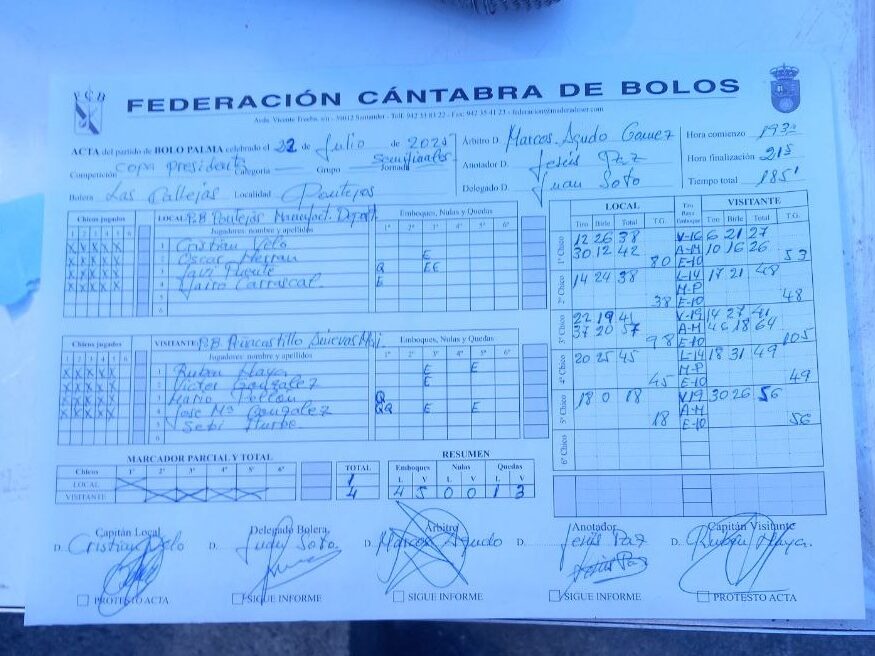 F C B
FEDERACIÓN CÁNTABRA DE BOLOS
ACTA del partido de BOLO PALMA celebrado el 22 de Julio de 2025
Árbitro D. Marcos Agudo Gomez
Hora comienzo 1930
Competición copa presidente Categoría Grupo Jornada Semifinales
Anotador D. Jesús Paz
Hora finalización 215
Bolera Las Callejas Localidad Pontejos
Delegado D. Juan Soto
Tiempo total 185'
Chicos jugados
1 2 3 4 5 6
LOCAL: P.B Pontejas Manufact. Deport.
Jugadores: nombre y apellidos
Emboques, Nulas y Quedas
1º 2º 3º 4º 5º 6º
X X X X X 1 Cristian Velo
X X X X X 2 Oscar Herran E
X X X X X 3 Javi Puente Q EE
X X X X X 4 Jairo Carrascal E
5
6
Chicos jugados
1 2 3 4 5 6
VISITANTE: P.B
Jugadores: nombre y apellidos
Emboques, Nulas y Quedas
1º 2º 3º 4º 5º 6º
X X X X X 1 Ruben Haya E E
X X X X X 2 Victor Gonzalez E
X X X X X 3 Mario Pellon Q
X X X X X 4 Jose Mª Gonzalez QQ E E
5 Sebi Iturbe
6
LOCAL VISITANTE
Tiro Birle Total T.G. Tiro Raya Emboque Tiro Birle Total T.G.
1º Chico 12 26 38 V-16 6 21 27
30 12 42 A-M 10 16 26
80 E-10 53
2º Chico 14 24 38 L-14 17 21 48
M-P
38 E-10 48
3º Chico 22 19 41 V-19 14 27 41
37 20 57 A-M 46 18 64
98 E-10 105
4º Chico 20 25 45 L-14 18 31 49
M-P
45 E-10 49
5º Chico 18 0 18 V-19 30 26 56
A-M
18 E-10 56
6º Chico
MARCADOR PARCIAL Y TOTAL
Chicos 1º 2º 3º 4º 5º 6º TOTAL
LOCAL X 1
VISITANTE X X X X 4
RESUMEN
Emboques Nulas Quedas
L V L V L V
4 5 0 0 1 3
Capitán Local
D. Cristian Velo
Delegado Bolera
D. Juan Soto
Árbitro
D. Marcos Agudo
Anotador
D. Jesús Paz
Jesús Paz
Capitán Visitante
D. Ruben Haya.
PROTESTO ACTA
SIGUE INFORME
SIGUE INFORME
SIGUE INFORME
PROTESTO ACTA